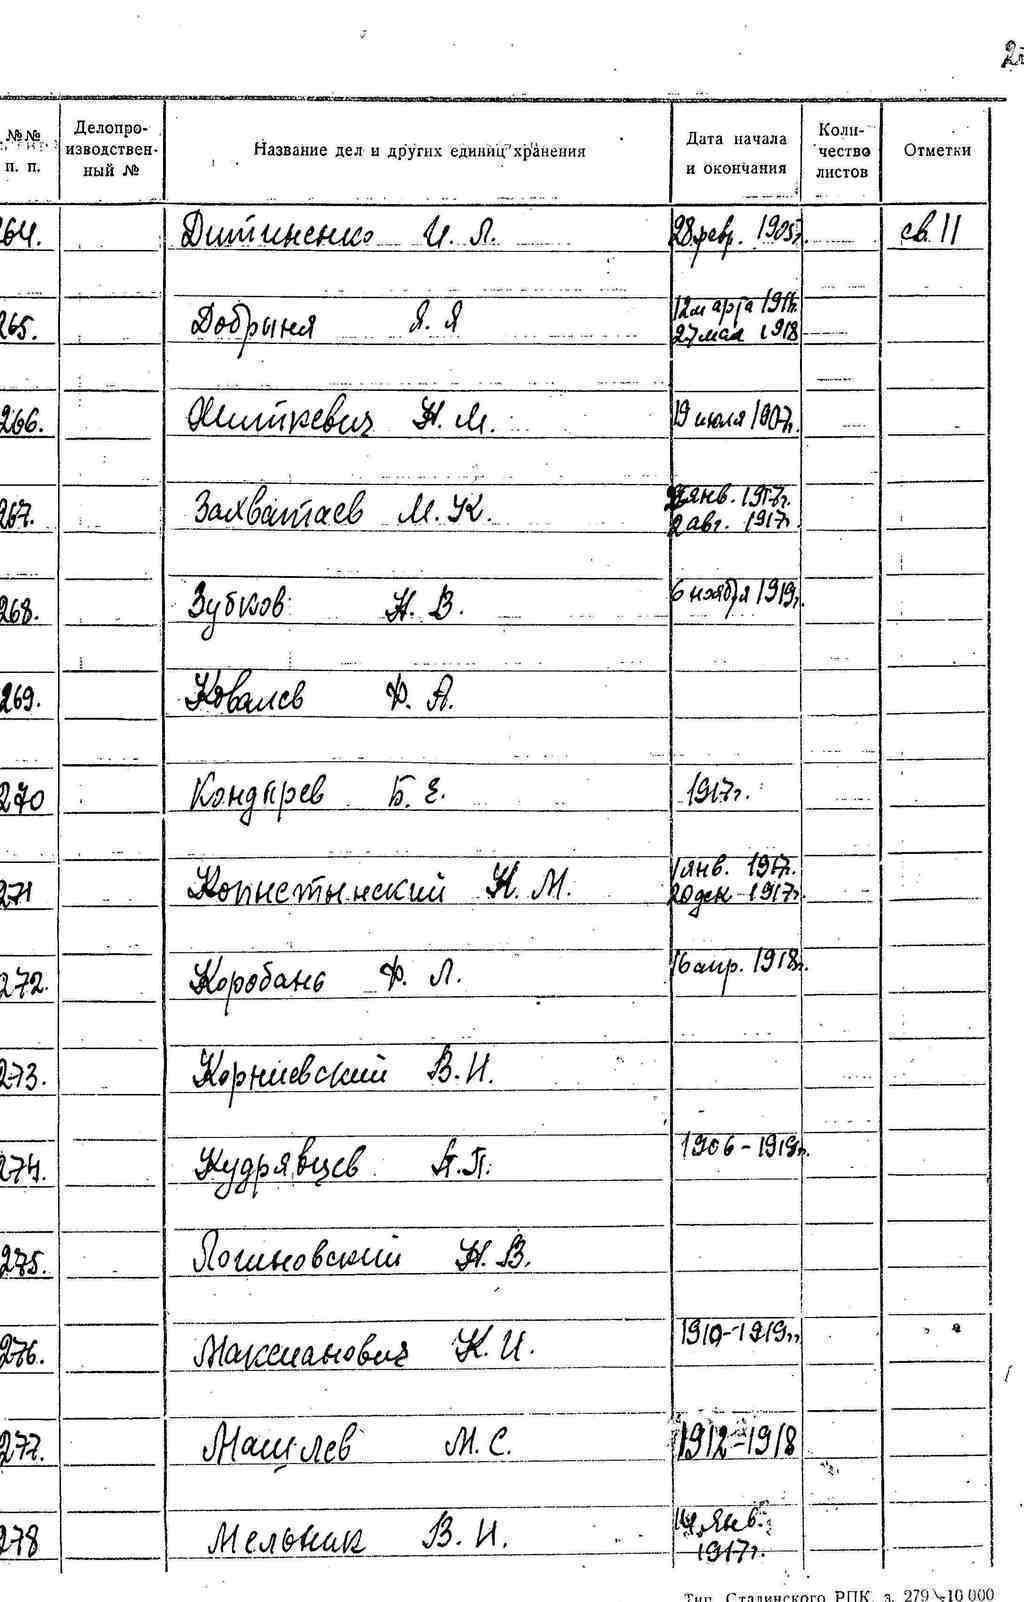 №№ п. п. Делопроизводственный № Название дел и других единиц хранения Дата начала и окончания Количество листов Отметки
264. Дитиненко И. Л. 28 февр. 1905г. св. 11
265. Добрыня Я. Я 12 марта 1911г. 27 мая 1918
266. Житкевич Н. М. 19 июля 1907г.
267. Захватаев М. К. янв. 1917г. 2 авг. 1917г.
268. Зубков Н. В. 6 ноября 1919г.
269. Ковалев Ф. А.
270 Кондырев Б. Е. 1917г.
271 Копыстынский Н. М. 1 янв. 1917г. 20 дек 1917г.
272. Коробань Ф. Л. 16 апр. 1918г.
273. Корниевский В. И.
274. Кудрявцев А. П. 1906-1919г.
275. Логиновский Н. В.
276. Максианович К. И. 1910-1919гг
277. Машлев М. С. 1912-1918
278 Мельник В. И. 14 янв. 1917г.
Тип. Сталинского РПК. з. 279-10 000